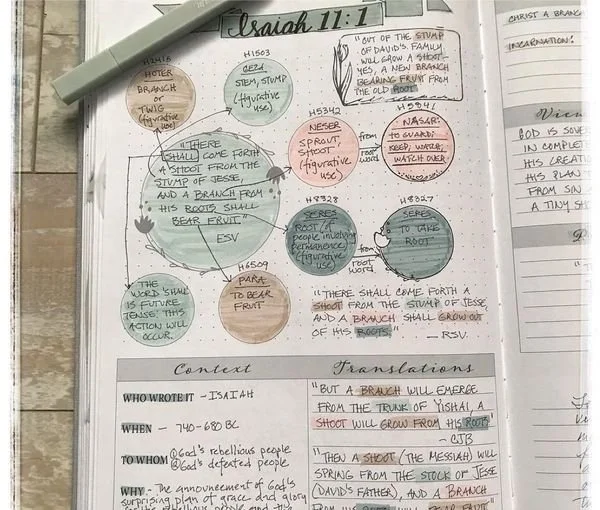 Isaiah 11:1
H2415
HOTER
BRANCH
or
TWIG
(figurative
use)
H1503
GEZA
STEM, STUMP
(figurative
use)
"OUT OF THE STUMP
OF DAVID'S FAMILY
WILL GROW A SHOOT—
YES, A NEW BRANCH
BEARING FRUIT FROM
THE OLD ROOT
"THERE
SHALL COME FORTH
A SHOOT FROM THE
STUMP OF JESSE,
AND A BRANCH FROM
HIS ROOTS SHALL
BEAR FRUIT"
ESV
H5342
NESER
SPROUT,
SHOOT
(figurative
use)
from
root
word
H5341
NASAR
TO GUARD,
KEEP, WATCH,
WATCH OVER
H8328
SERES
ROOT (of
people involving
permanence)
(figurative
use)
from
root
word
H8327
SERES
TO TAKE
ROOT
THE
WORD SHALL
IS FUTURE
TENSE; THIS
ACTION WILL
OCCUR.
H6509
PARA
TO BEAR
FRUIT
"THERE SHALL COME FORTH A
SHOOT FROM THE STUMP OF JESSE,
AND A BRANCH SHALL GROW OUT
OF HIS ROOTS."
— RSV
Context
WHO WROTE IT - ISAIAH
WHEN - 740-680 BC
TO WHOM ① God's rebellious people
② God's defeated people
WHY - The announcement of God's
surprising plan of grace and glory
Translations
"BUT A BRANCH WILL EMERGE
FROM THE TRUNK OF YISHAI, A
SHOOT WILL GROW FROM HIS ROOTS"
- CJB
"THEN A SHOOT (THE MESSIAH) WILL
SPRING FROM THE STOCK OF JESSE
(DAVID'S FATHER), AND A BRANCH
FROM HIS ROOTS WILL BEAR FRUIT
CHRIST A BRANC
INCARNATION.
View
GOD IS SOVE
IN COMPLET
HIS CREATI
HIS PLAN
FROM SIN
A TINY SH